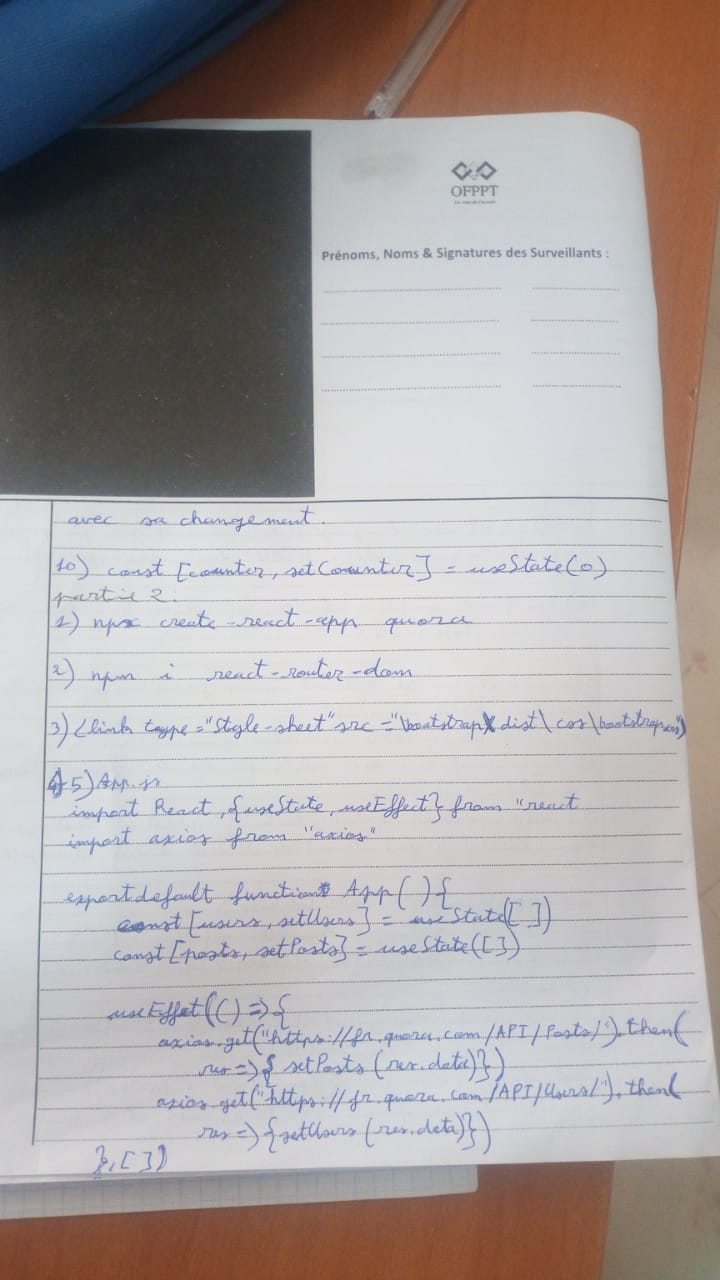 OFPPT
Prénoms, Noms & Signatures des Surveillants :
avec sa changement.
10) const [counter, setCounter] = useState(0)
partie 2.
1) npx create-react-app quora
2) npm i react-router-dom
3) <link type="Style-sheet" src="\bootstrap\dist\css\bootstrap.css")
5) App.js
import React, {useState, useEffect} from "react
import axios from "axios"
export default function App() {
const [users, setUsers] = useState([])
const [posts, setPosts] = useState([])
useEffet(() => {
axios.get("https://fr.quora.com/API/Posts/").then(
res => { setPosts (res.data)})
axios.get("https://fr.quora.com/API/Users/").then(
res => {setUsers (res.data)})
},[])